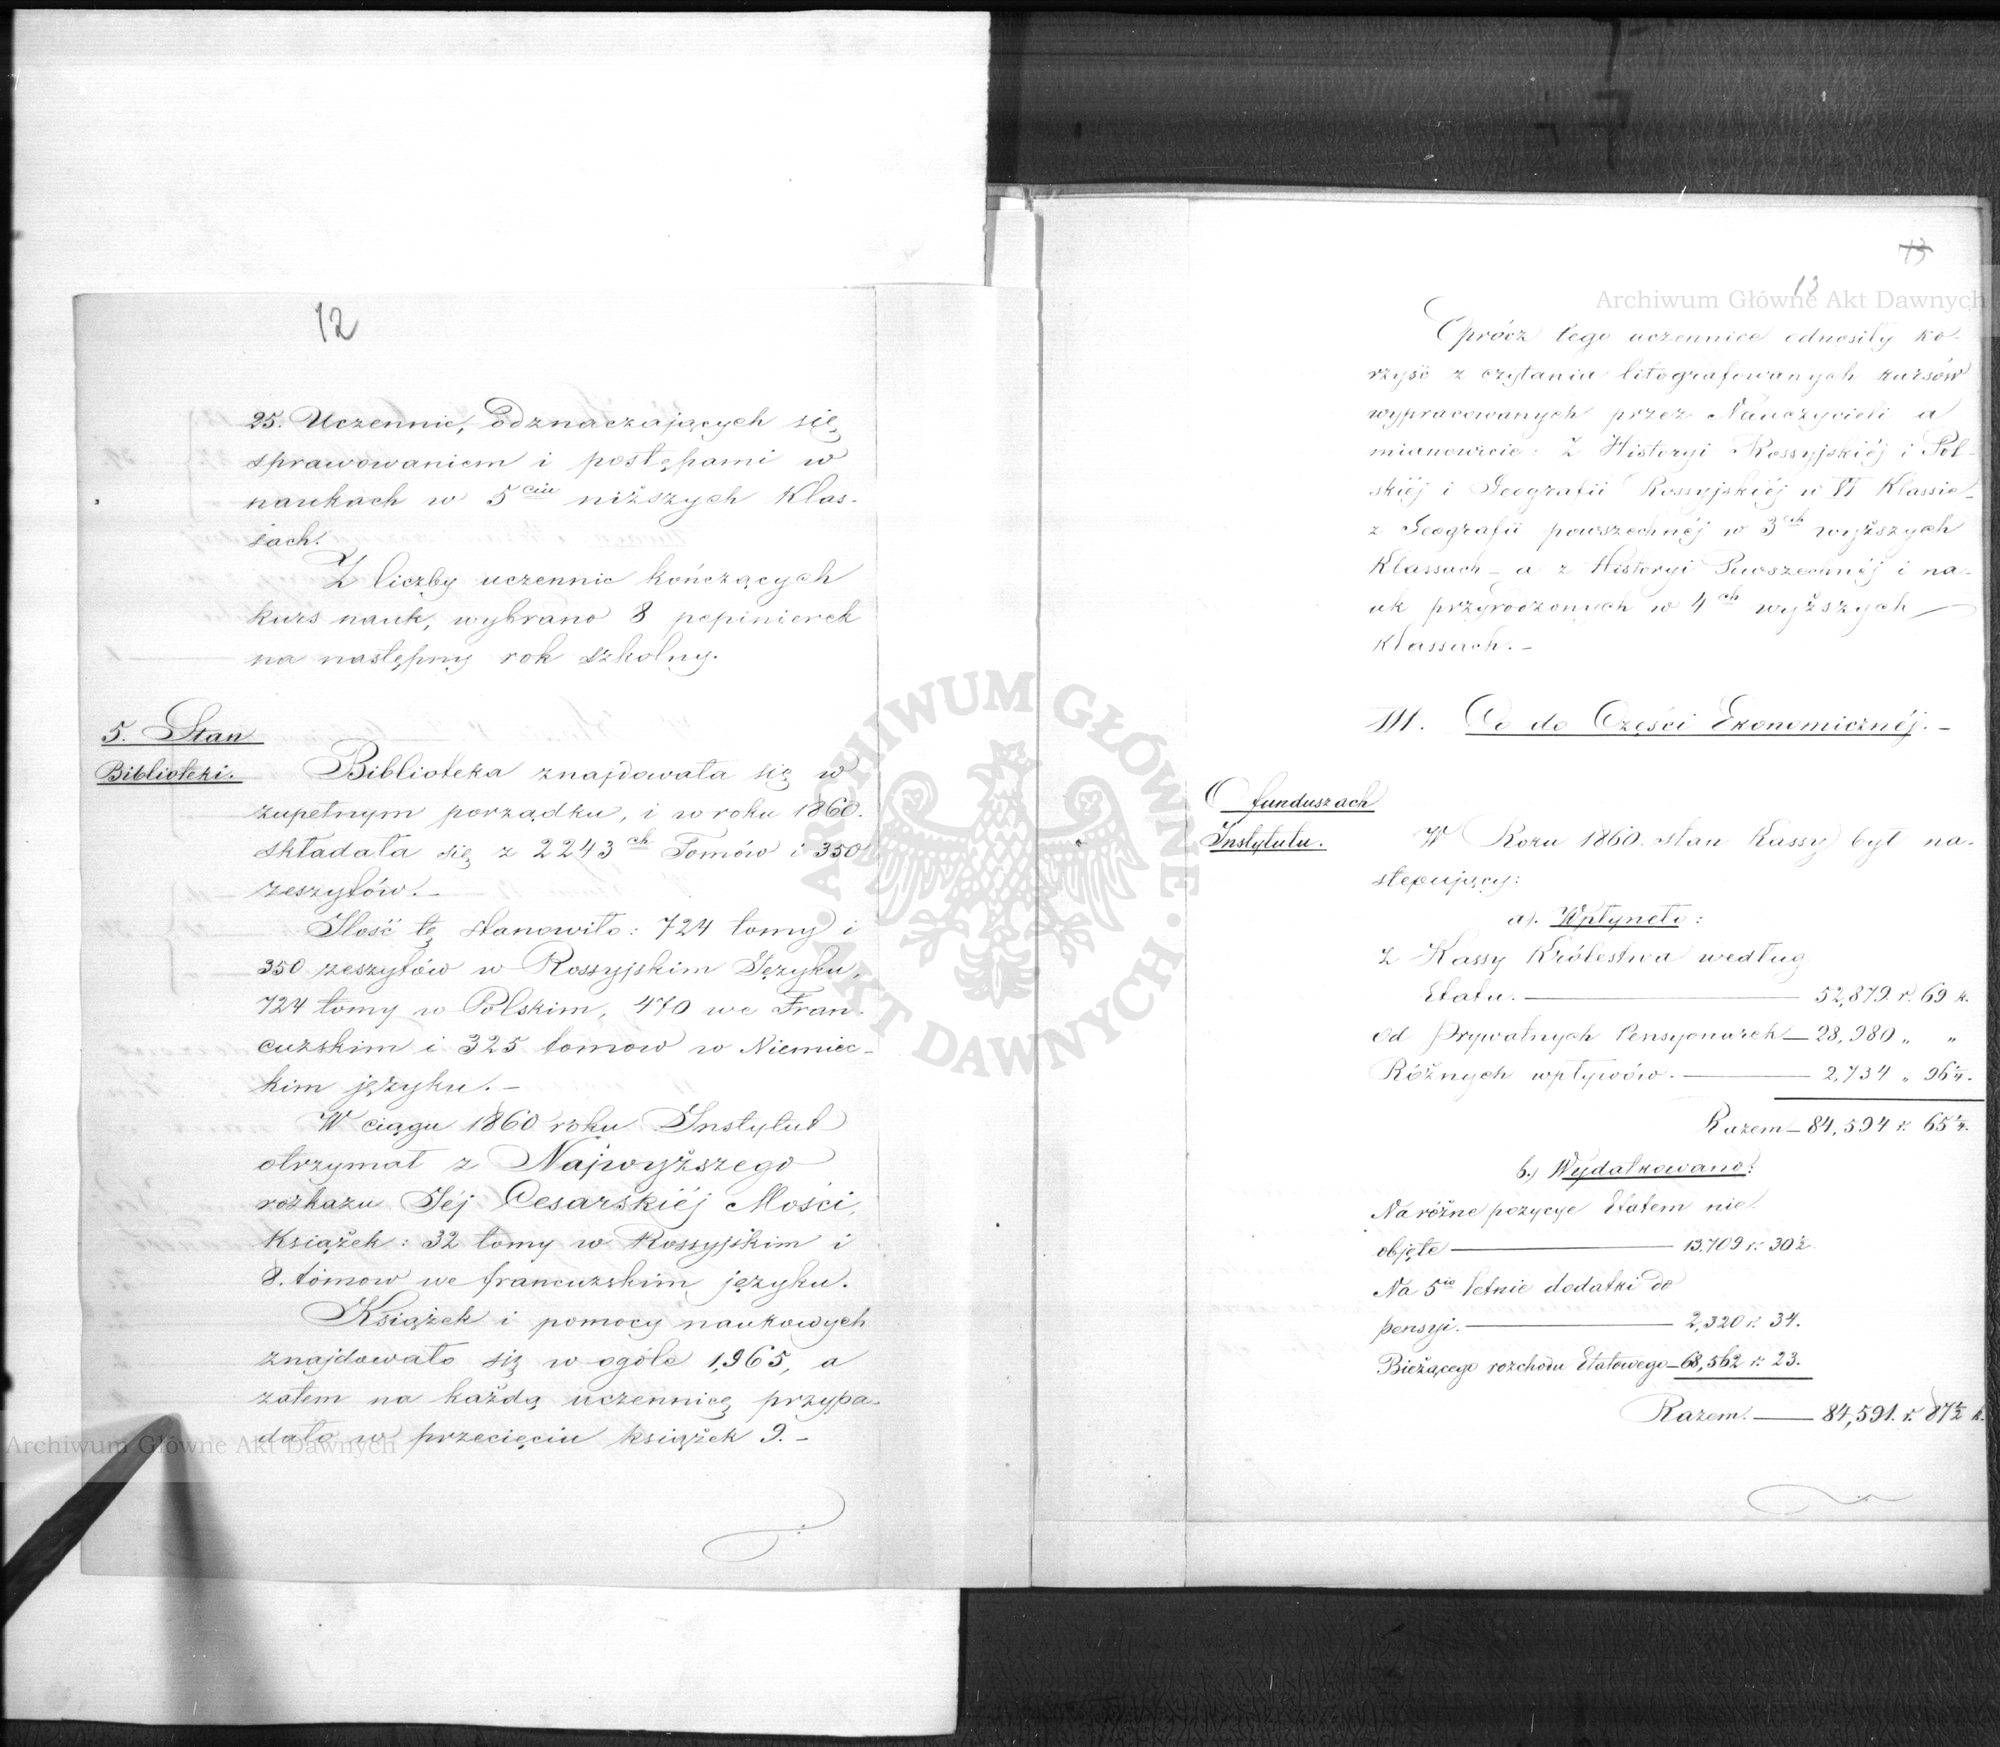 12
25. Uczennic, odznaczających się
sprawowaniem i postępami w
naukach w 5ciu niższych Klas-
sach.
Z liczby uczennic kończących
kurs nauk, wybrano 8 pepinierek
na następny rok szkolny.
5. Stan
Biblioteki.
Biblioteka znajdowała się w
zupełnym porządku, i w roku 1860.
składała się z 2243ch Tomów i 350
zeszytów.-
Ilość tę stanowiło: 724 tomy i
350 zeszytów w Rossyjskim Języku,
724 tomy w Polskim, 470 we Fran-
cuzkim i 325 tomow w Niemiec-
kim języku.-
W ciągu 1860 roku Instytut
otrzymał z Najwyższego
rozkazu Jéj Cesarskiéj Mości,
Książek: 32 tomy w Rossyjskim i
8. tomow we francuzkim języku.
Książek i pomocy naukowych
znajdowało się w ogóle 1,965, a
zatem na każdą uczennicę przypa-
dało w przecięciu książek 9.-
Archiwum Główne Akt Dawnych
13
13
Archiwum Główne Akt Dawnych
Oprócz tego uczennice odnosiły ko-
rzyść z czytania litografowanych kursów
wypracowanych przez Nauczycieli a
mianowicie: Z Historyi Rossyjskiéj i Pol-
skiéj i Geografii Rossyjskiéj w VI Klassie-
z Geografii powszechnéj w 3ch wyższych
Klassach- a z Historyi Powszechnéj i na-
uk przyrodzonych w 4ch wyższych
Klassach.-
III. Co do Części Ekonomicznéj.-
O funduszach
Instytutu.
W Roku 1860. stan Kassy był na-
stępujący:
a). Wpłynęło:
Z Kassy Królestwa według
Etatu. — 52,879. r. 69 k.
Od Prywatnych Pensyonarek — 28,980 „ „
Różnych wpływów. — 2,734 „ 96½.
Razem — 84,594 r. 65½.
b.) Wydatkowano:
Na różne pozycye Etatem nie
objęte — 13.709 r. 30½.
Na 5cio letnie dodatki do
pensyi. — 2,320 r. 34.
Bieżącego rozchodu Etatowego — 68,562 r. 23.
Razem. — 84,591. r. 87½ k.
ARCHIWUM GŁÓWNE AKT DAWNYCH